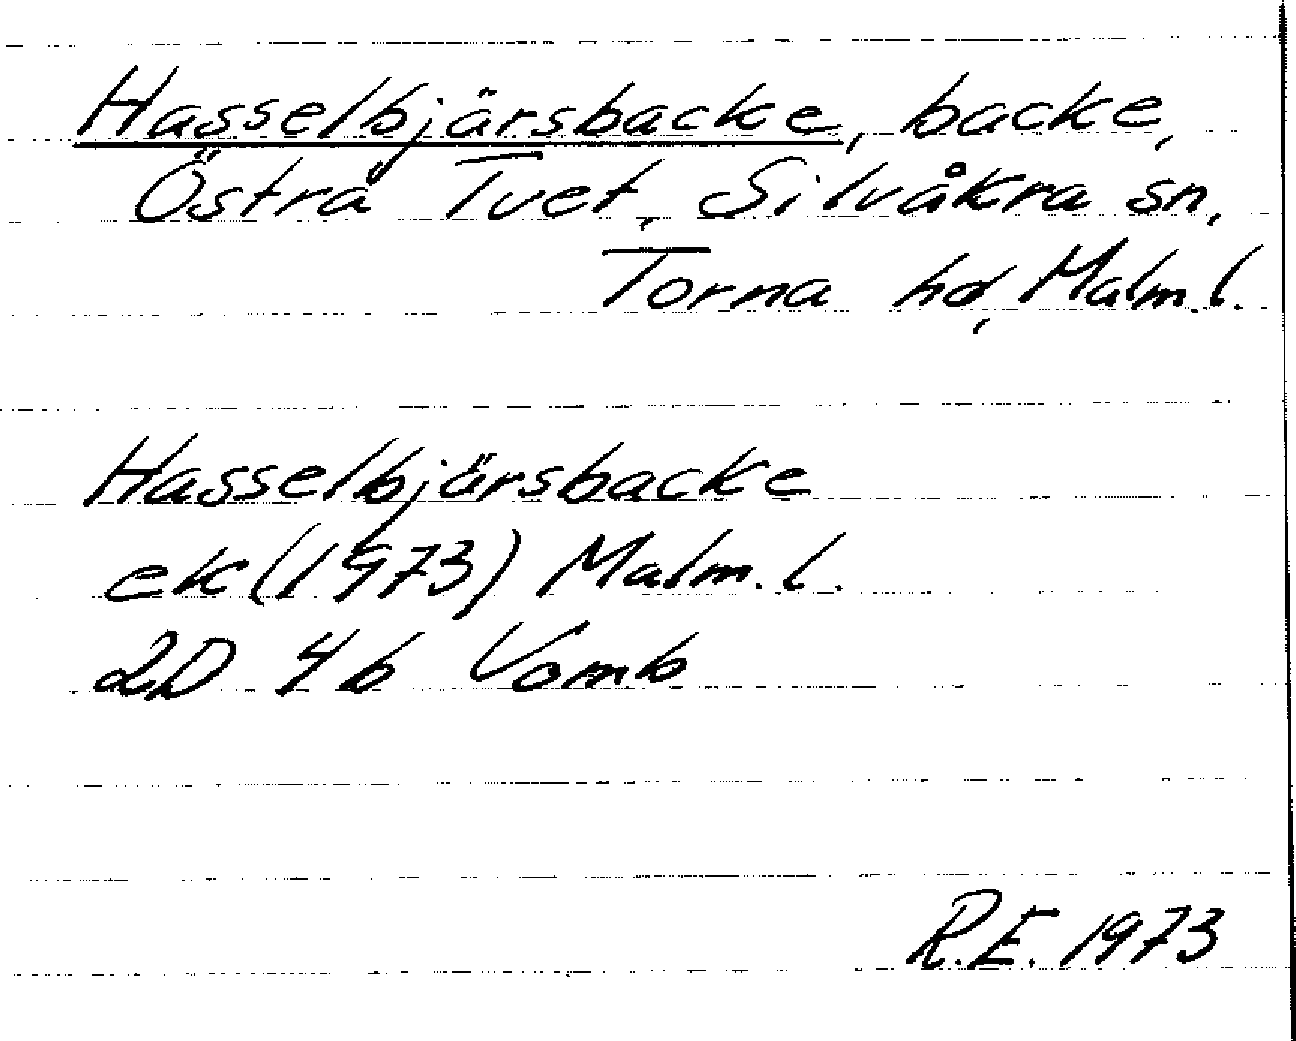 Hasselbjärsbacke, backe,
Östra Tvet, Silvåkra sn,
Torna hd, Malm. l.
Hasselbjärsbacke
ek (1973) Malm. l.
2D 4b Vomb
R.E. 1973